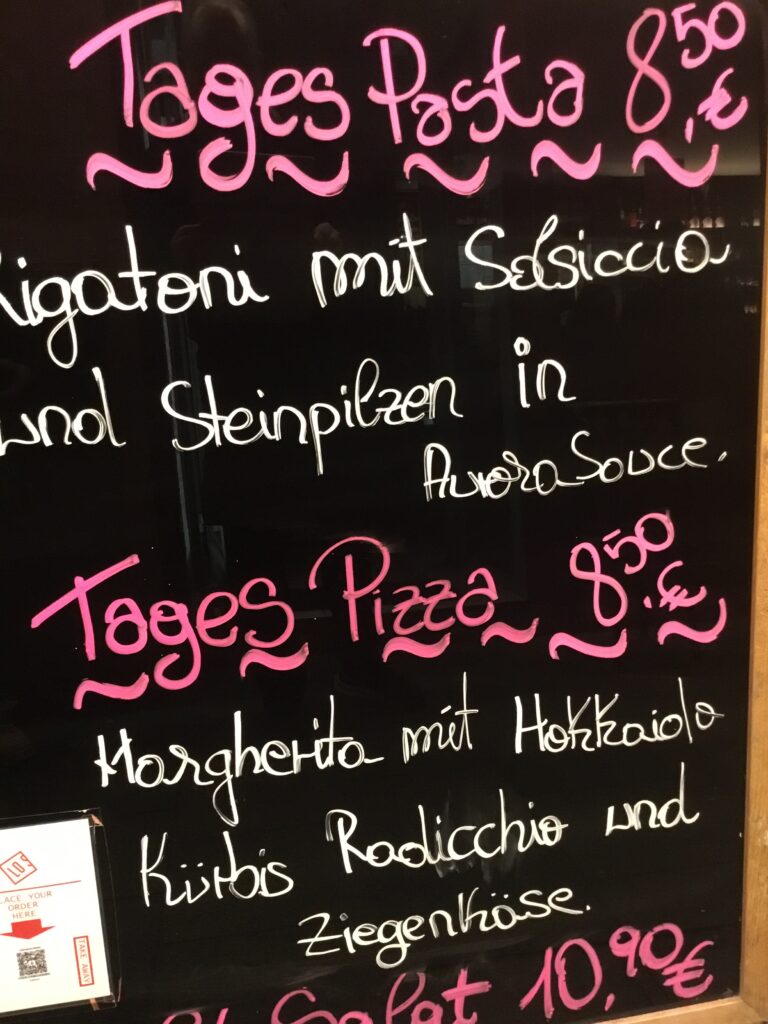 Tages Pasta 8,50 €
Rigatoni mit Salsiccia
und Steinpilzen in
Aurora Souce.
Tages Pizza 8,50 €
Margherita mit Hokkaido
Kürbis Radicchio und
Ziegenkäse.
Salat 10,90 €
LOS
PLACE YOUR
ORDER
HERE
TAKE AWAY